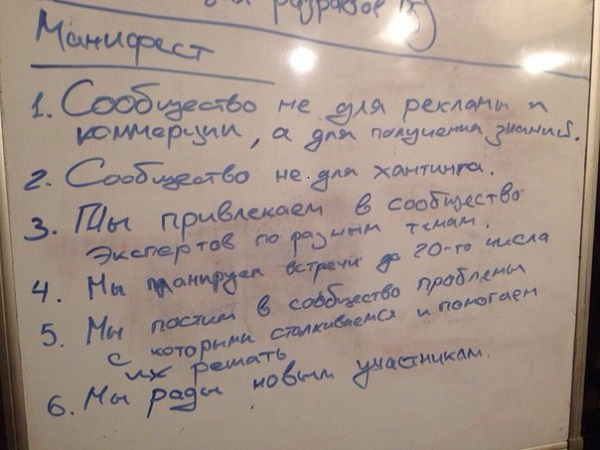 для разработ
Манифест
1. Сообщество не для рекламы и
коммерции, а для получения знаний.
2. Сообщество не для хантинга.
3. Мы привлекаем в сообщество
экспертов по разным темам.
4. Мы планируем встречи до 20-го числа
5. Мы постим в сообщество проблемы
с которыми сталкиваемся и помогаем
их решать
6. Мы рады новым участникам.